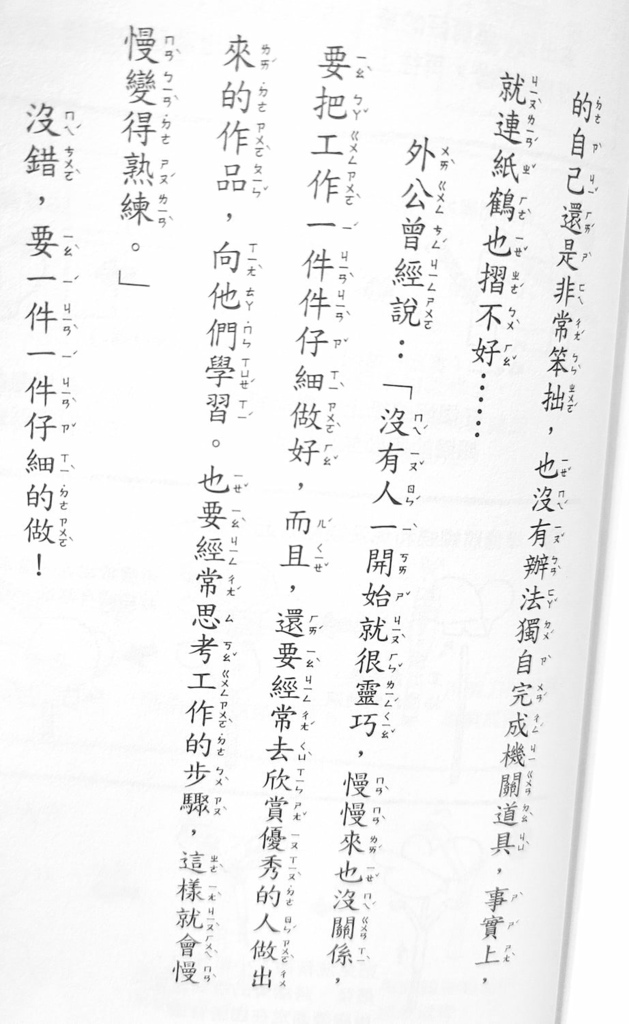 的自己還是非常笨拙，也沒有辦法獨自完成機關道具，事實上，
就連紙鶴也摺不好……
外公曾經說：「沒有人一開始就很靈巧，慢慢來也沒關係，
要把工作一件件仔細做好，而且，還要經常去欣賞優秀的人做出
來的作品，向他們學習。也要經常思考工作的步驟，這樣就會慢
慢變得熟練。」
沒錯，要一件一件仔細的做！